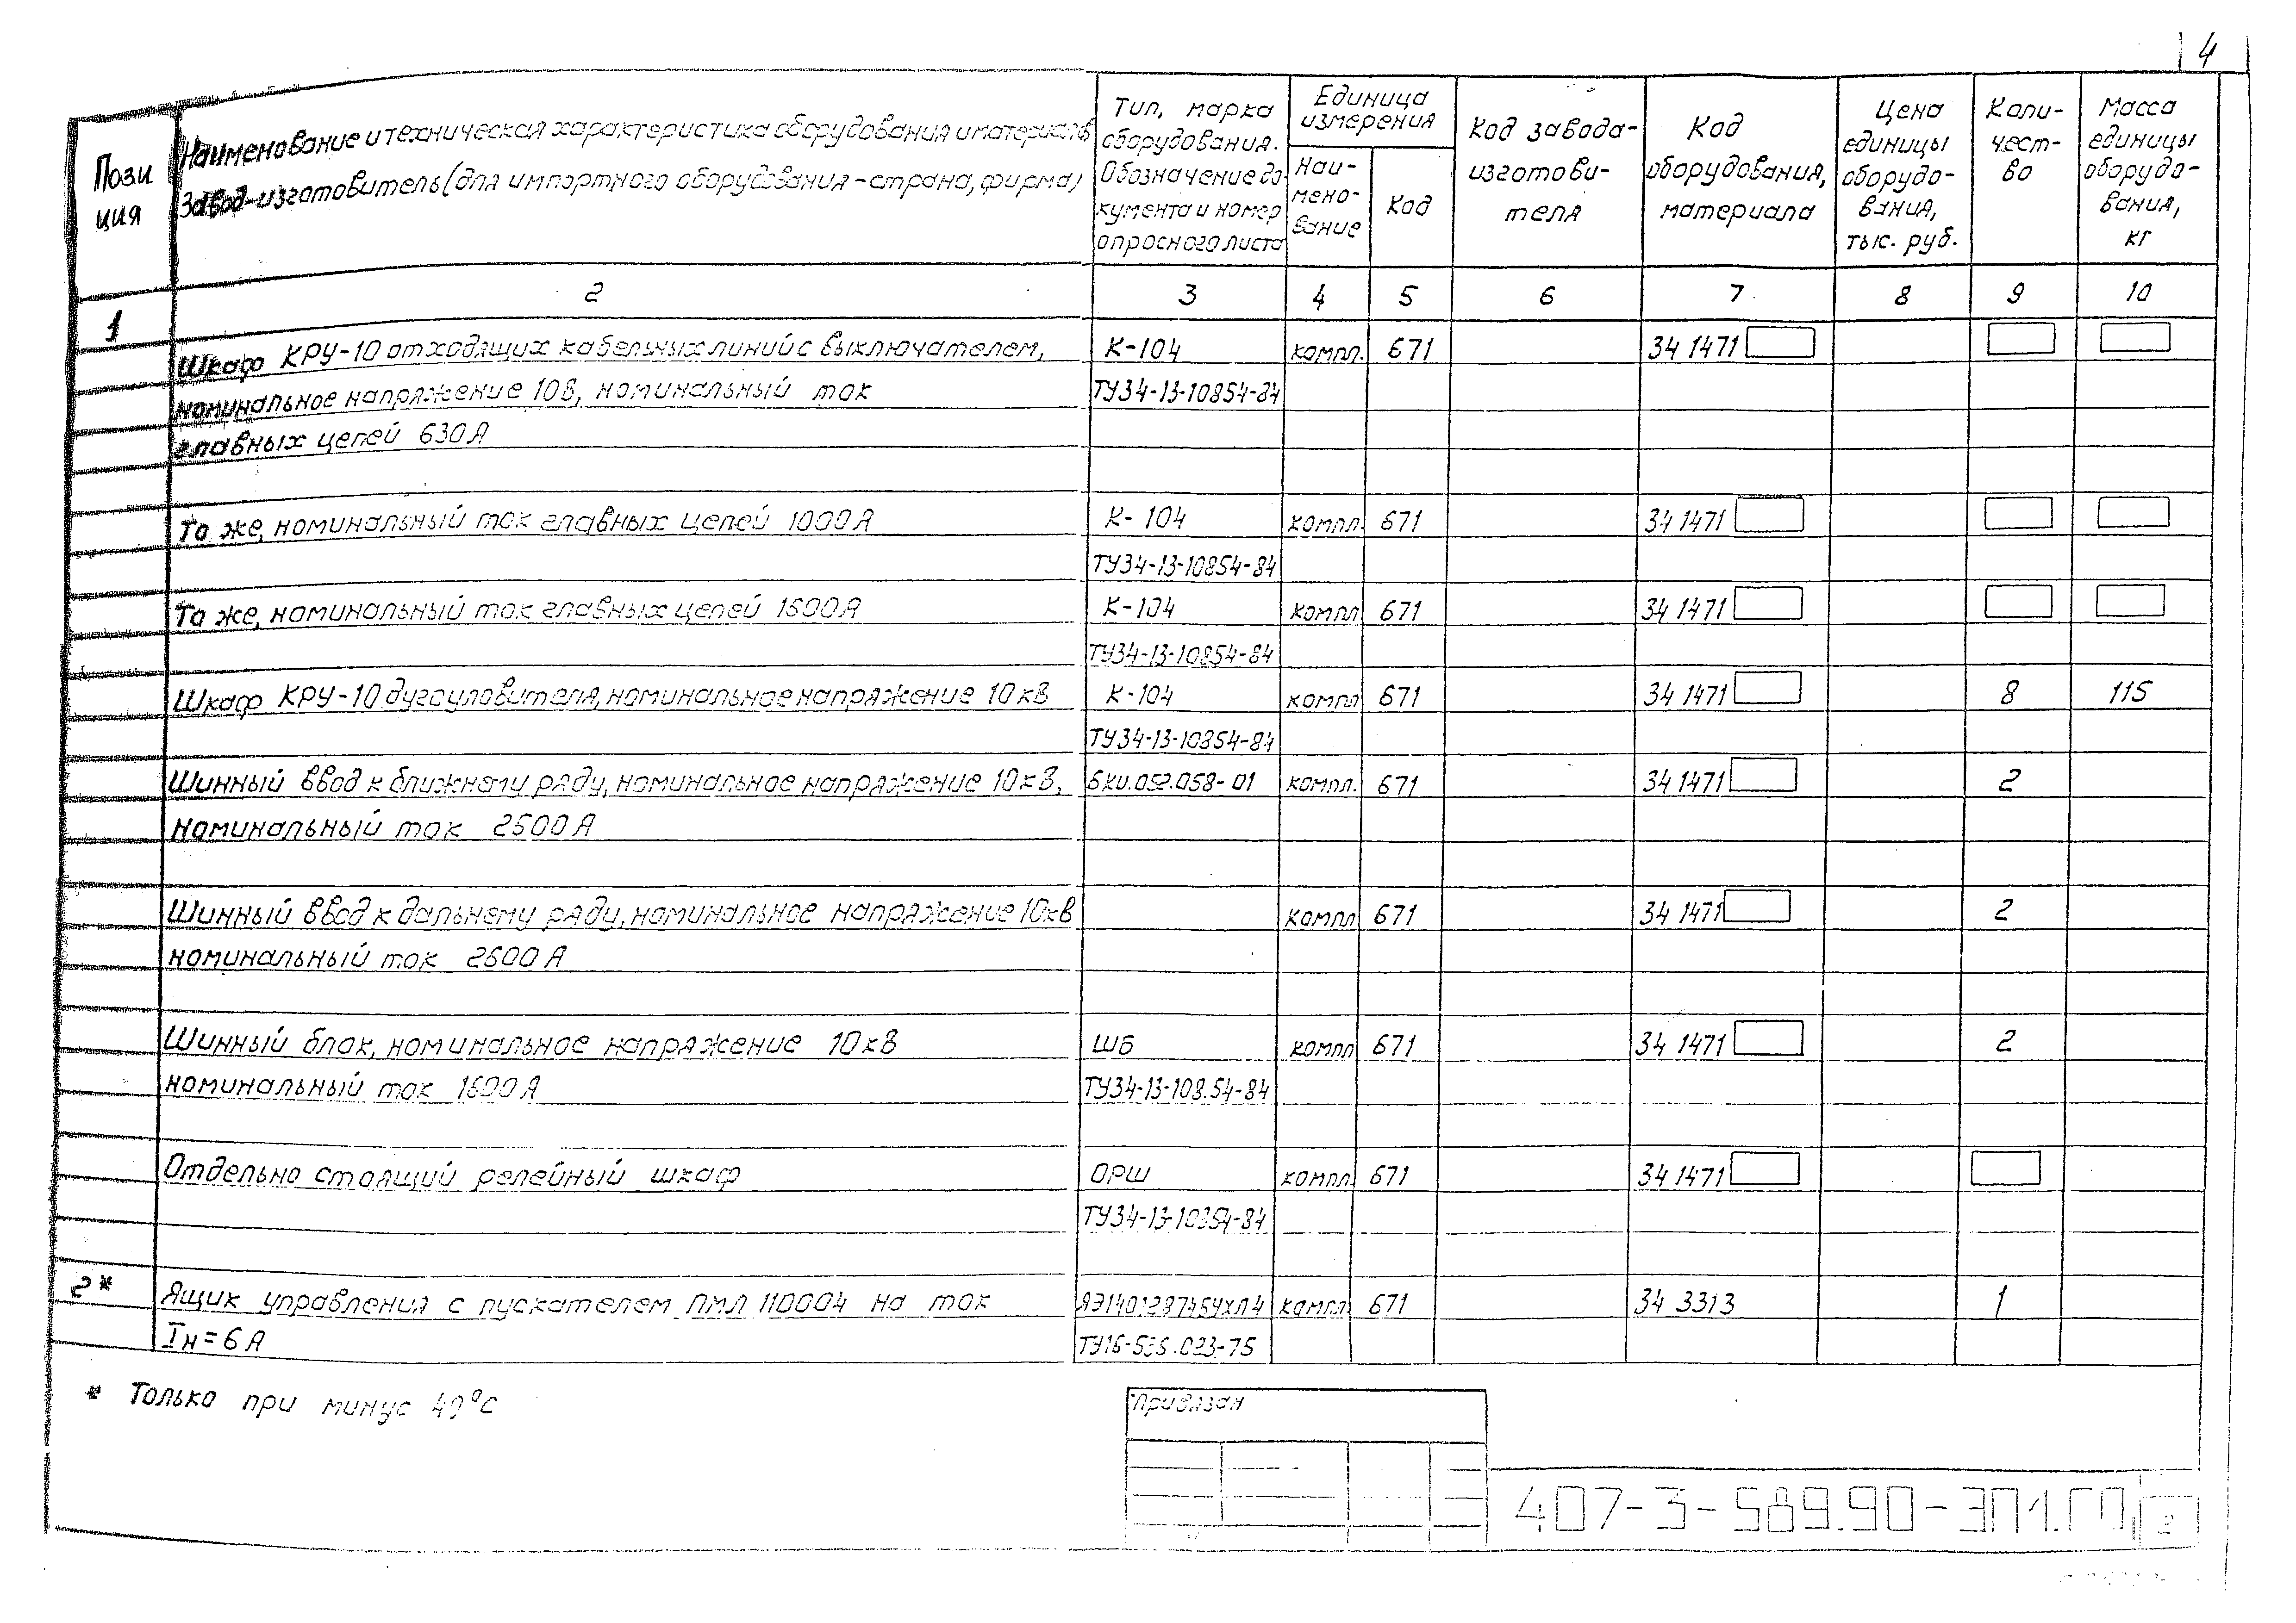 4
Пози
ция
Наименование и техническая характеристика оборудования и материалов
Завод-изготовитель (для импортного оборудования - страна, фирма)
Тип, марка
оборудования.
Обозначение до
кумента и номер
опросного листа
Единица
измерения
Наи-
мено-
вание
Код
Код завода-
изготови-
теля
Код
оборудования,
материала
Цена
единицы
оборудо-
вания,
тыс. руб.
Коли-
чест-
во
Масса
единицы
оборудо-
вания,
кг
1 2 3 4 5 6 7 8 9 10
Шкаф КРУ-10 отходящих кабельных линий с выключателем, К-104 компл. 671 34 1471
номинальное напряжение 10В, номинальный ток ТУ34-13-10854-84
главных цепей 630А
То же, номинальный ток главных цепей 1000А К-104 компл. 671 34 1471
ТУ34-13-10854-84
То же, номинальный ток главных цепей 1600А К-104 компл 671 34 1471
ТУ34-13-10854-84
Шкаф КРУ-10 дугоуловителя, номинальное напряжение 10кВ К-104 компл 671 34 1471 8 115
ТУ34-13-10854-84
Шинный ввод к ближнему ряду, номинальное напряжение 10кВ, компл. 671 34 1471 2
номинальный ток 2500А
Шинный ввод к дальнему ряду, номинальное напряжение 10кВ компл 671 34 1471 2
номинальный ток 2600А
Шинный блок, номинальное напряжение 10кВ ШБ компл 671 34 1471 2
номинальный ток 1600А ТУ34-13-108.54-84
Отдельно стоящий релейный шкаф ОРШ компл. 671 34 1471
ТУ34-13-10854-84
2* Ящик управления с пускателем ПМЛ 110004 на ток компл. 671 34 3313 1
Iн=6А
* Только при минус 40°С
Привязан
407-3-589.90-ЭП1.ГО
2